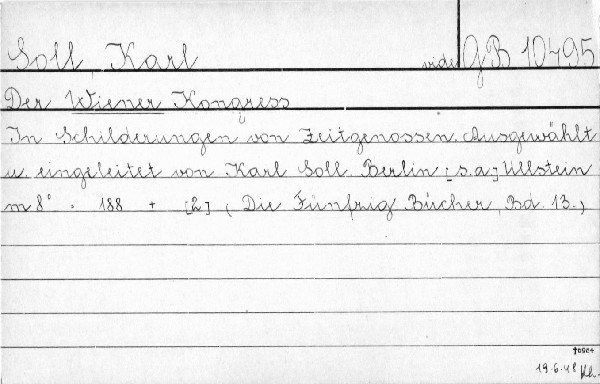 Soll, Karl vide GB 10495
Der Wiener Kongress
In Schilderungen von Zeitgenossen. Ausgewählt
u. eingeleitet von Karl Soll. Berlin [s.a.] Ullstein
m 8° . 188 + [2] (Die Fünfzig Bücher, Bd. 13.)
19.6.48